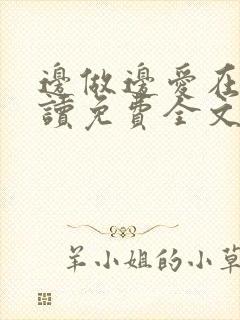 邊做邊愛在
讀免費全文
羊小姐的小草